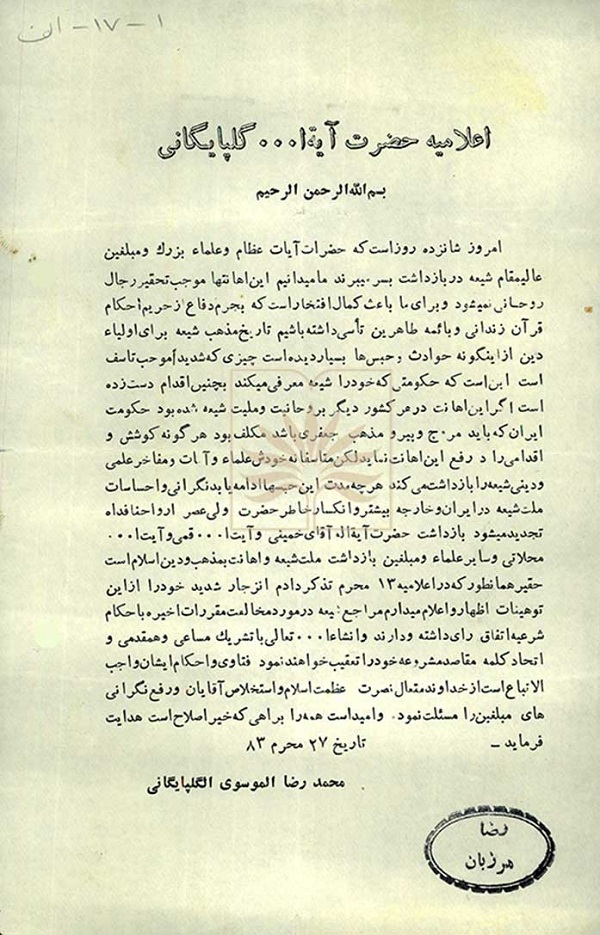 ۱ - ۱۷ - الف
اعلامیه حضرت آیة ا۰۰۰ گلپایگانی
بسم الله الرحمن الرحیم
امروز شانزده روز است که حضرات آیات عظام و علماء بزرک و مبلغین
عالیمقام شیعه در بازداشت بسر میبرند ما میدانیم این اهانتها موجب تحقیر رجال
روحانی نمیشود و برای ما باعث کمال افتخار است که بجرم دفاع از حریم احکام
قرآن زندانی و بائمه طاهرین تأسی داشته باشیم تاریخ مذهب شیعه برای اولیاء
دین از اینگونه حوادث و حبس‌ها بسیار دیده است چیزی که شدیداً موجب تاسف
است این است که حکومتی که خود را شیعه معرفی میکند بچنین اقدام دست زده
است اگر این اهانت در هر کشور دیگر بروحانیت و ملیت شیعه شده بود حکومت
ایران که باید مروج و پیرو مذهب جعفری باشد مکلف بود هر گونه کوشش و
اقدامی را در رفع این اهانت نماید لکن متاسفانه خودش علماء و آیات و مفاخر علمی
و دینی شیعه را بازداشت می کند هر چه مدت این حبسها ادامه یابد نگرانی و احساسات
ملت شیعه در ایران و خارجه بیشتر و انکسار خاطر حضرت ولی عصر ارواحنا فداه
تجدید میشود بازداشت حضرت آیة اله آقای خمینی و آیت ا۰۰۰ قمی و آیت ا۰۰۰
محلاتی و سایر علماء و مبلغین بازداشت ملت شیعه و اهانت بمذهب و دین اسلام است
حقیر همانطور که در اعلامیه ۱۳ محرم تذکر دادم انزجار شدید خود را از این
توهینات اظهار و اعلام میدارم مراجع شیعه در مورد مخالفت مقررات اخیره با احکام
شرعیه اتفاق رای داشته و دارند و انشاء ا۰۰۰ تعالی با تشریك مساعی و همقدمی و
اتحاد کلمه مقاصد مشروعه خود را تعقیب خواهند نمود فتاوی و احکام ایشان واجب
الاتباع است از خداوند متعال نصرت عظمت اسلام و استخلاص آقایان و رفع نگرانی
های مبلغین را مسئلت نمود. و امید است همه را براهی که خیر اصلاح است هدایت
فرماید ـ تاریخ ۲۷ محرم ۸۳
محمد رضا الموسوی الگلپایگانی
رضا
مرزبان